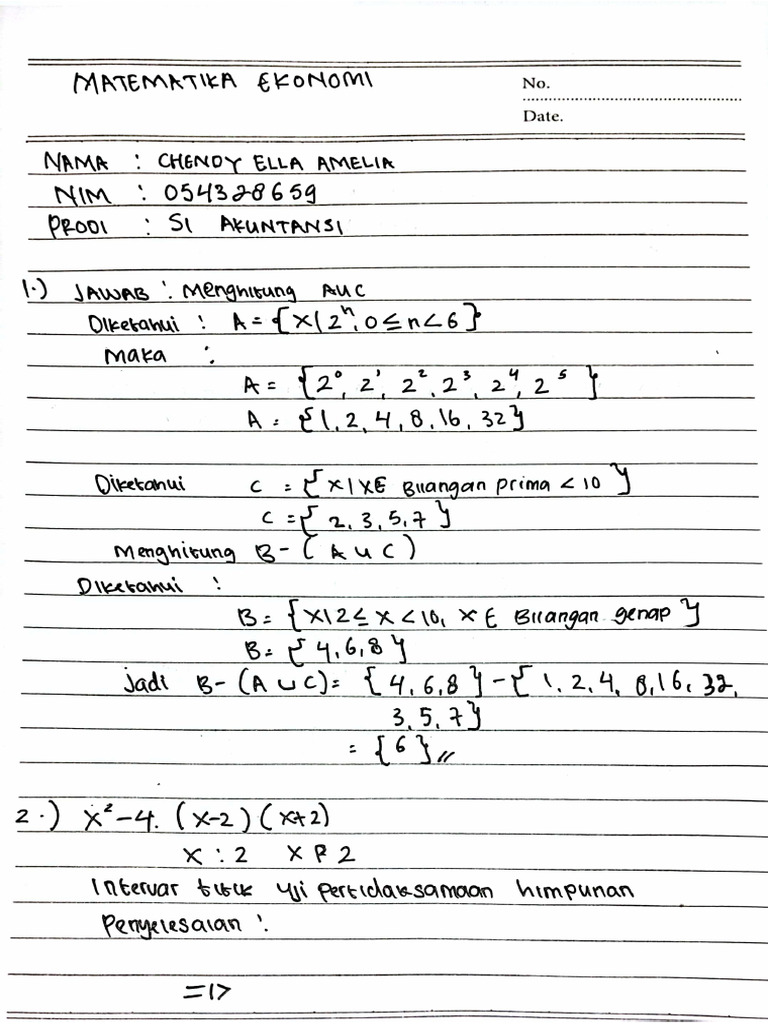 MATEMATIKA EKONOMI
No.
Date.
NAMA : CHENDY ELLA AMELIA
NIM : 054328659
PRODI : S1 AKUNTANSI
1.) JAWAB : Menghitung AUC
Diketahui : A = {X|2ⁿ, 0 ≤ n < 6}
Maka :
A = {2⁰, 2¹, 2², 2³, 2⁴, 2⁵}
A = {1, 2, 4, 8, 16, 32}
Diketahui C = {X|X∈ Bilangan prima < 10}
C = {2, 3, 5, 7}
Menghitung B - (A ∪ C)
Diketahui :
B = {X|2 ≤ X < 10, X ∈ Bilangan genap}
B = {4, 6, 8}
Jadi B - (A ∪ C) = {4, 6, 8} - {1, 2, 4, 8, 16, 32,
3, 5, 7}
= {6} //
2.) X² - 4. (X-2) (X+2)
X : 2 X 2
Interval titik uji pertidaksamaan himpunan
Penyelesaian :
=>